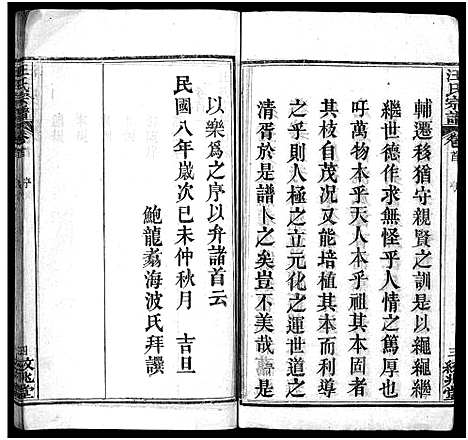 汪氏宗譜
卷首
序
輔遷移猶守親賢之訓是以繩繩繼
繼世德作求無怪乎人情之篤厚也
吁萬物本乎天人本乎祖其本固者
其枝自茂況又能培植其本而利導
之乎則人極之立元化之運世道之
清胥於是譜卜之矣豈不美哉是
以樂為之序以弁諸首云
民國八年歲次己未仲秋月 吉旦
鮑龍翥海波氏拜譔
汪氏宗譜
卷首
序
四